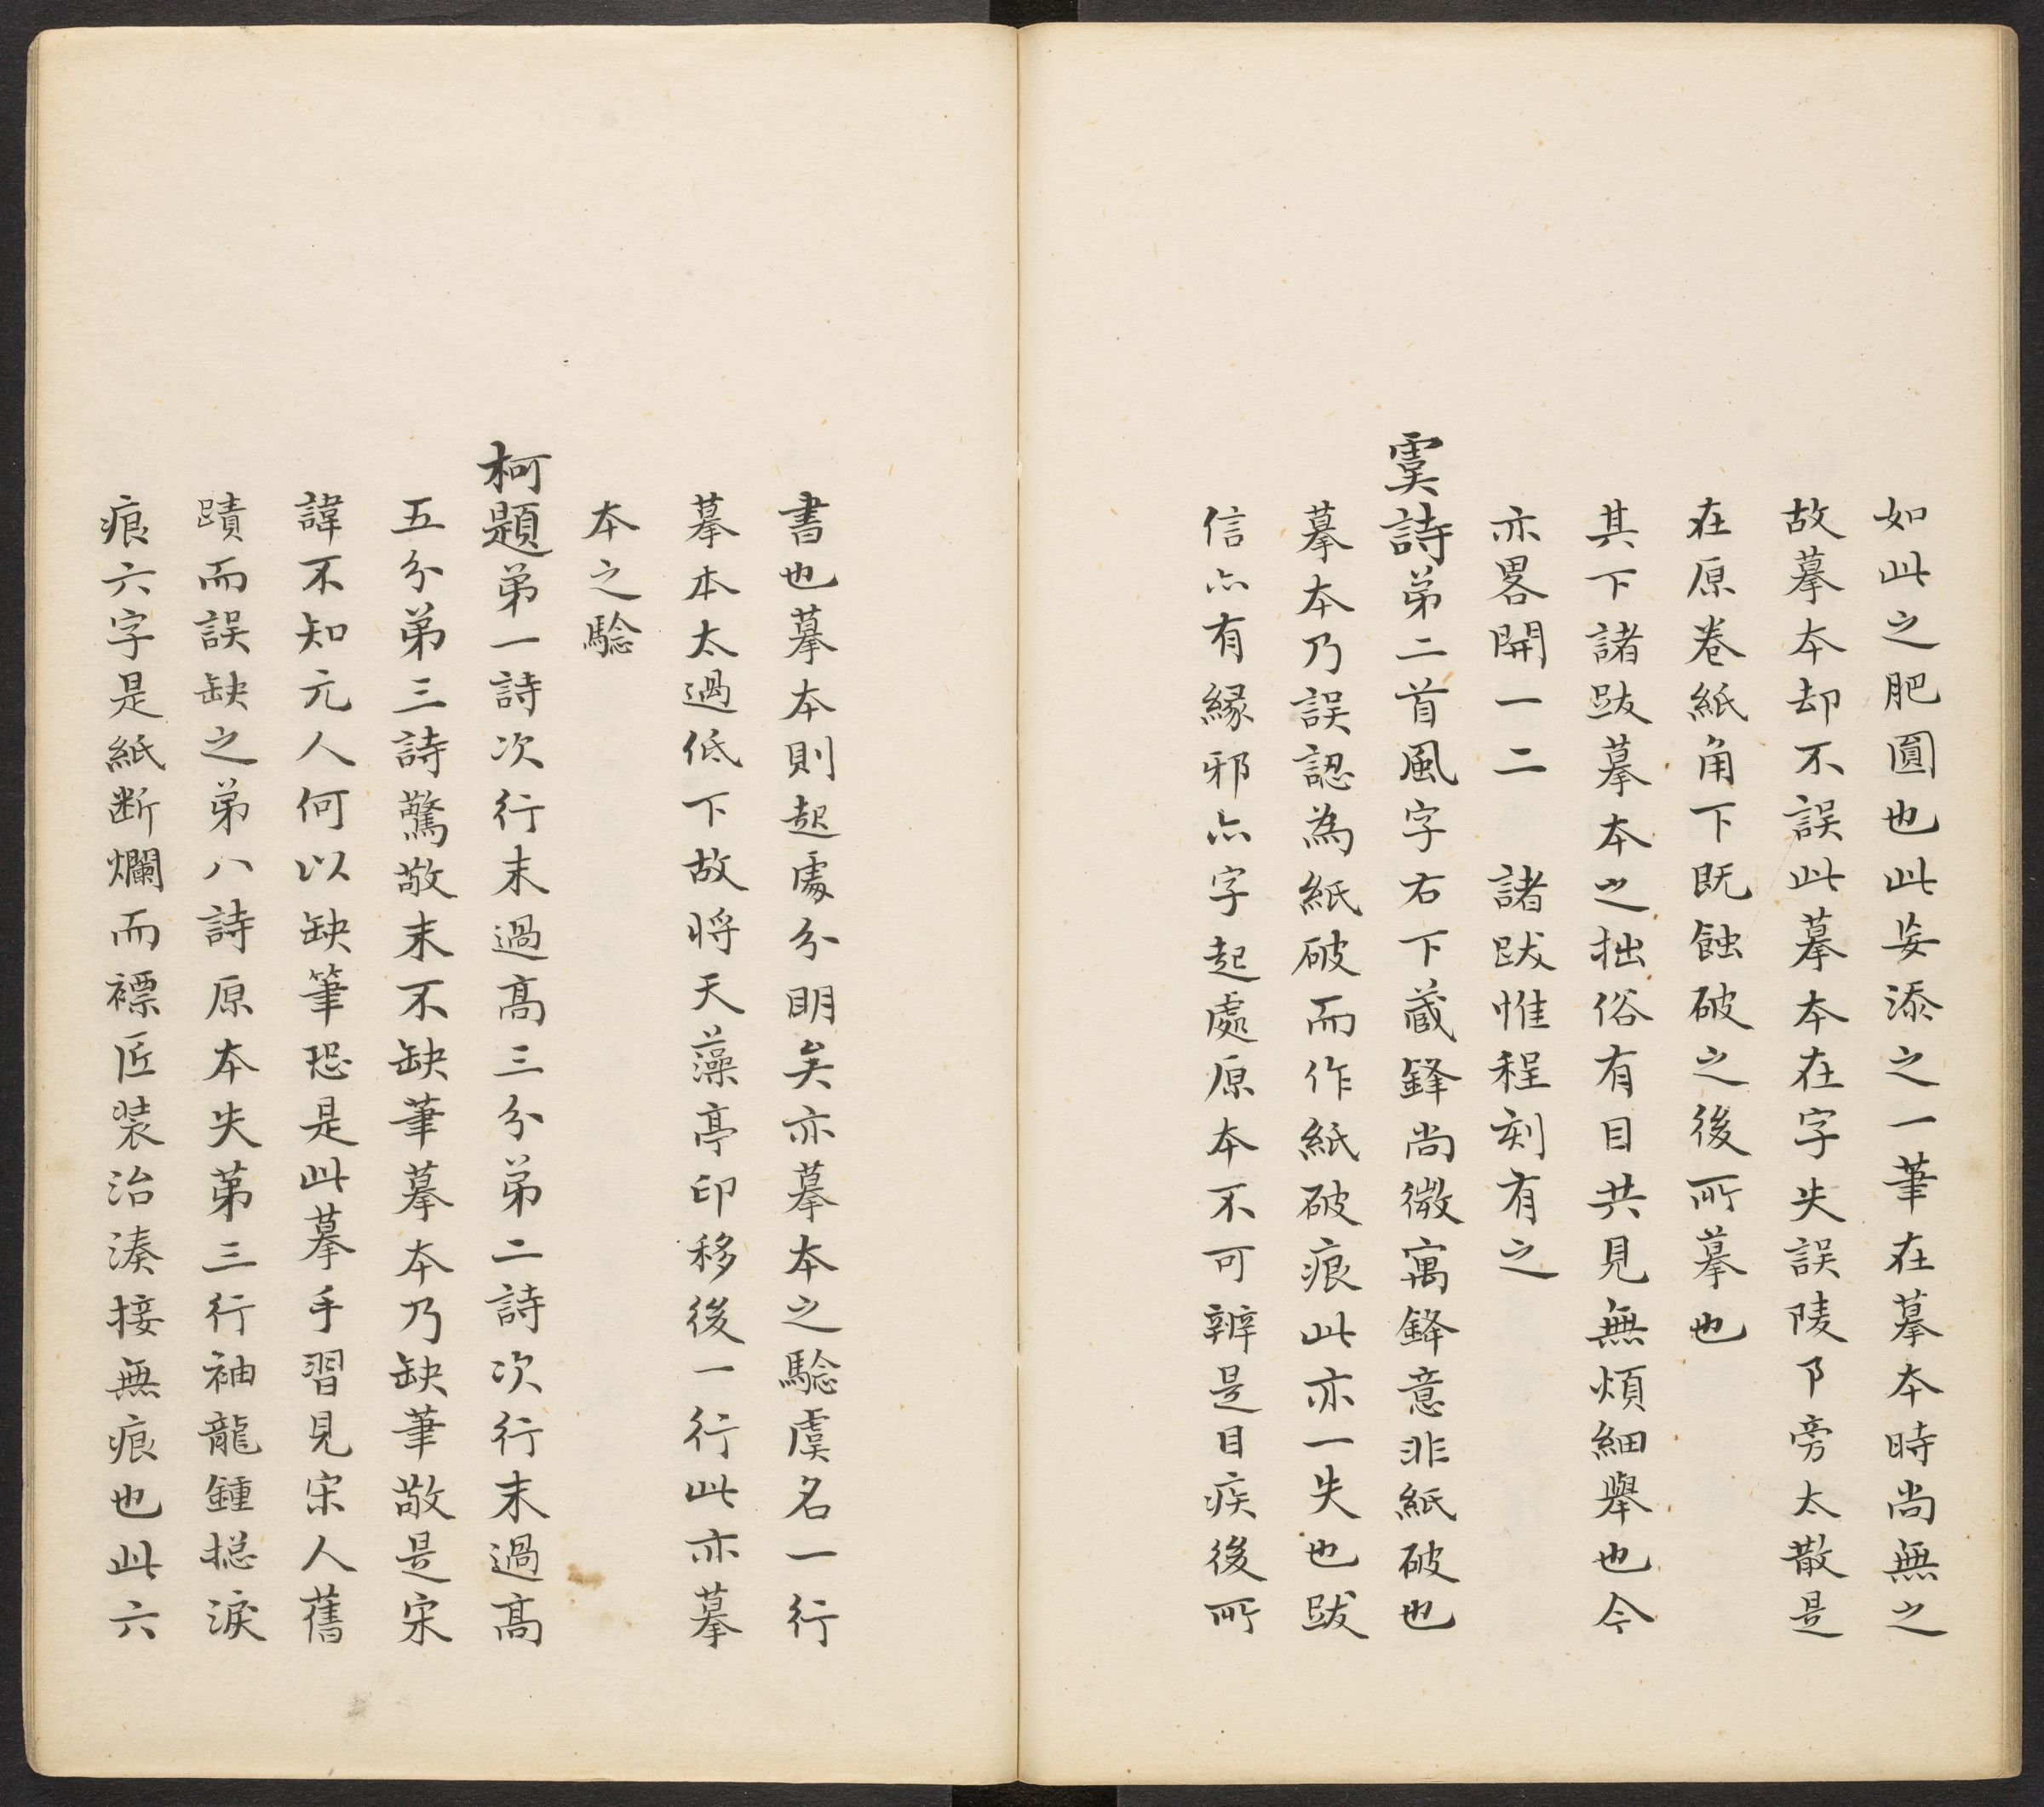 如此之肥圓也此妄添之一筆在摹本時尚無之
故摹本却不誤此摹本在字失誤陵阝旁太散是
在原卷紙角下既蝕破之後所摹也
其下諸跋摹本之拙俗有目共見無煩細舉也今
亦畧開一二　諸跋惟程刻有之
虞詩弟二首風字右下藏鋒尚微寓鋒意非紙破也
摹本乃誤認為紙破而作紙破痕此亦一失也跋
信亦有緣邪亦字起處原本不可辨是目疾後所
書也摹本則起處分明矣亦摹本之驗虞名一行
摹本太過低下故將天藻亭印移後一行此亦摹
本之驗
柯題弟一詩次行末過高三分弟二詩次行末過高
五分弟三詩驚敬末不缺筆摹本乃缺筆敬是宋
諱不知元人何以缺筆恐是此摹手習見宋人舊
蹟而誤缺之弟八詩原本失苐三行袖龍鍾摠淚
痕六字是紙断爛而褾匠装治湊接無痕也此六